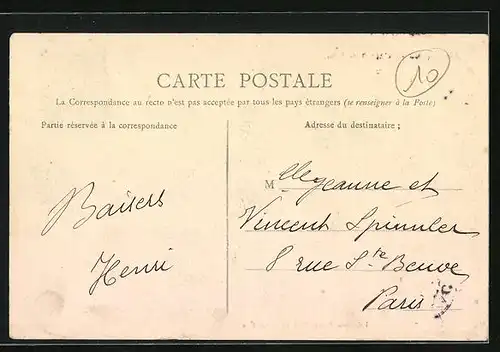 10
CARTE POSTALE
La Correspondance au recto n'est pas acceptée par tous les pays étrangers (se renseigner à la Poste)
Partie réservée à la correspondance
Adresse du destinataire ;
M Jeanne et
Vincent Spinnler
8 rue Ste Beuve
Paris
Baisers
Henri